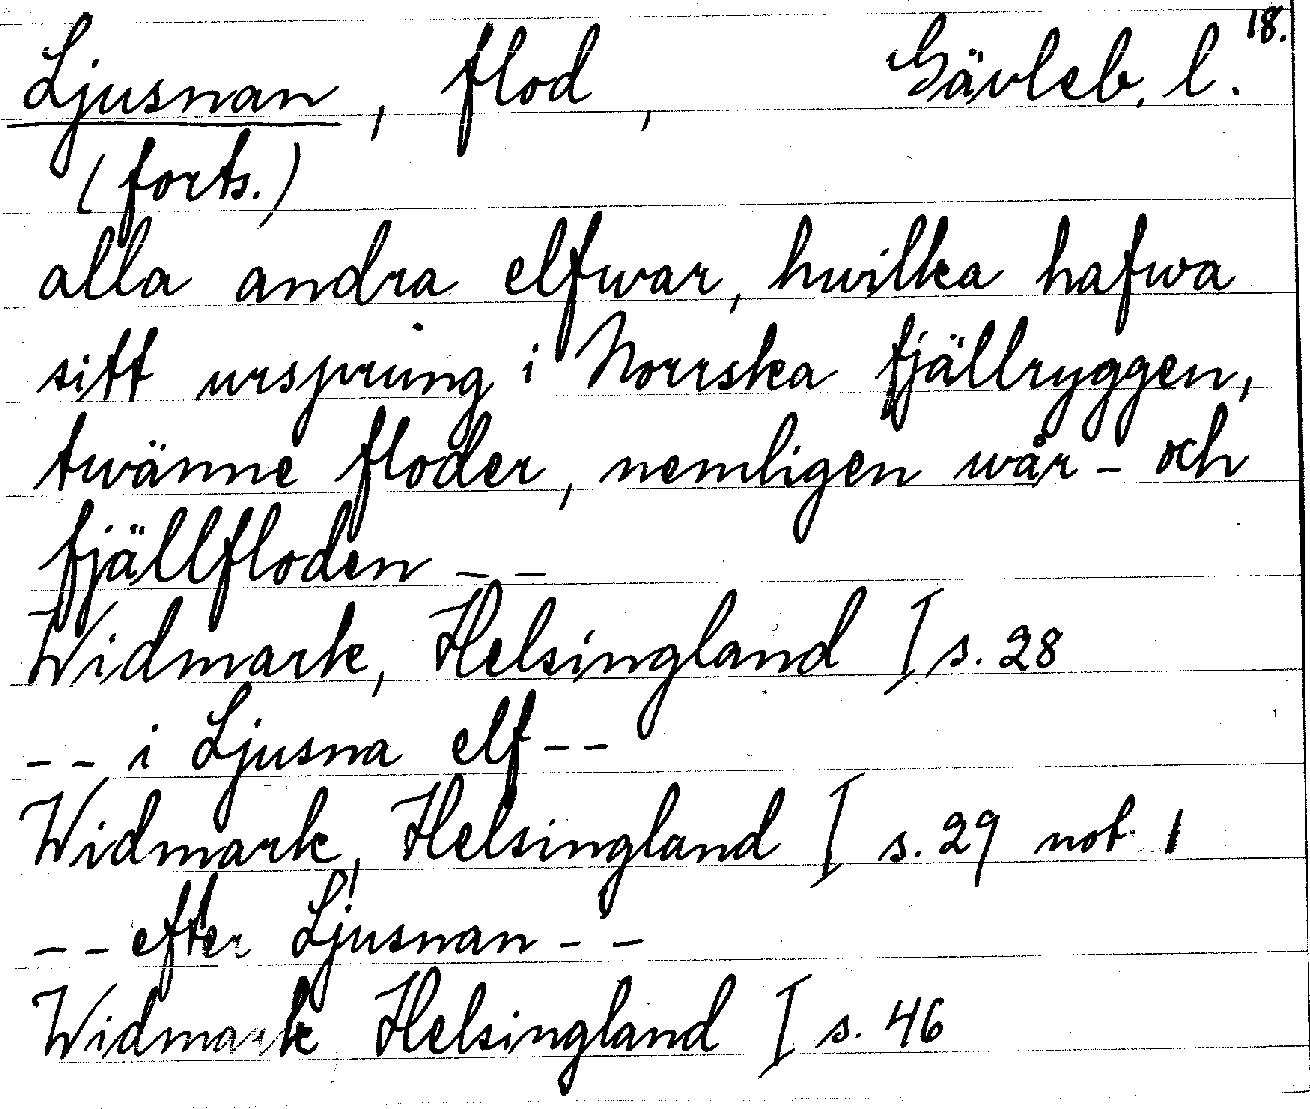 18.
Ljusnan, flod, Gävleb. l.
(forts.)
alla andra elfwar, hwilka hafwa
sitt ursprung i Norrska fjällryggen,
twänne floder, nemligen wår- och
fjällfloden _ _
Widmark, Helsingland I s. 28
_ _ i Ljusna elf _ _
Widmark, Helsingland I s. 29 not 1
_ _ efter Ljusnan _ _
Widmark Helsingland I s. 46